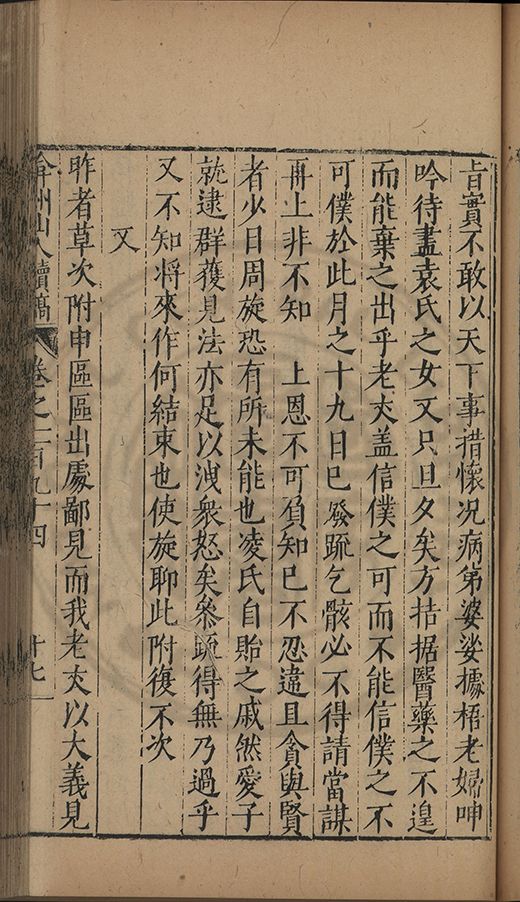 旨實不敢以天下事措懷况病弟婆娑據梧老婦呻
吟待盡袁氏之女又只旦夕矣方拮据醫藥之不遑
而能棄之出乎老丈盖信僕之可而不能信僕之不
可僕於此月之十九日已發疏乞骸必不得請當謀
再上非不知　上恩不可負知已不忍違且貪與賢
者少日周旋恐有所未能也凌氏自貽之戚然愛子
就逮群蒦見法亦足以洩衆怒矣叅疏得無乃過乎
又不知將來作何結束也使旋聊此附復不次
又
昨者草次附申區區出處鄙見而我老丈以大義見
弇州山人續稿　卷之一百九十四　十七